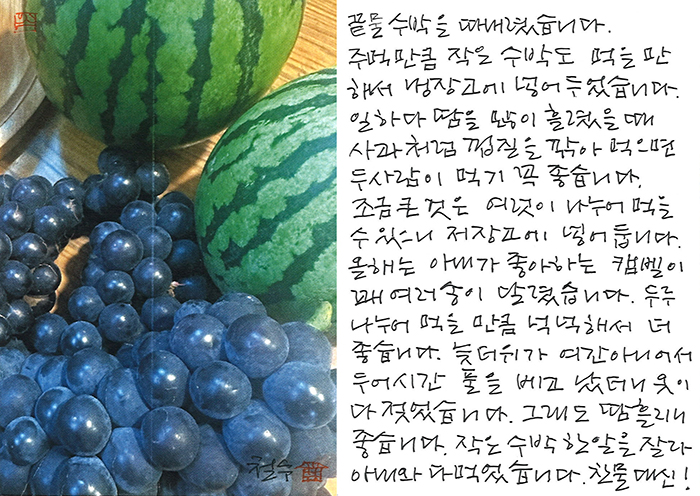 끝물 수박을 따내렸습니다.
주먹만큼 작은 수박도 먹을 만
해서 냉장고에 넣어 두었습니다.
일하다 땀을 많이 흘렸을 때
사과처럼 껍질을 깎아 먹으면
두사람이 먹기 꼭 좋습니다.
조금 큰 것은 여럿이 나누어 먹을
수 있으니 저장고에 넣어 둡니다.
올해는 아내가 좋아하는 캠벨이
꽤 여러 송이 달렸습니다. 두루
나누어 먹을 만큼 넉넉해서 더
좋습니다. 늦더위가 여간아니어서
두어시간 풀을 베고 났더니 옷이
다 젖었습니다. 그래도 땀흘리니
좋습니다. 작은 수박 한알을 잘라
아내와 다먹었습니다. 찬물 대신!
철수